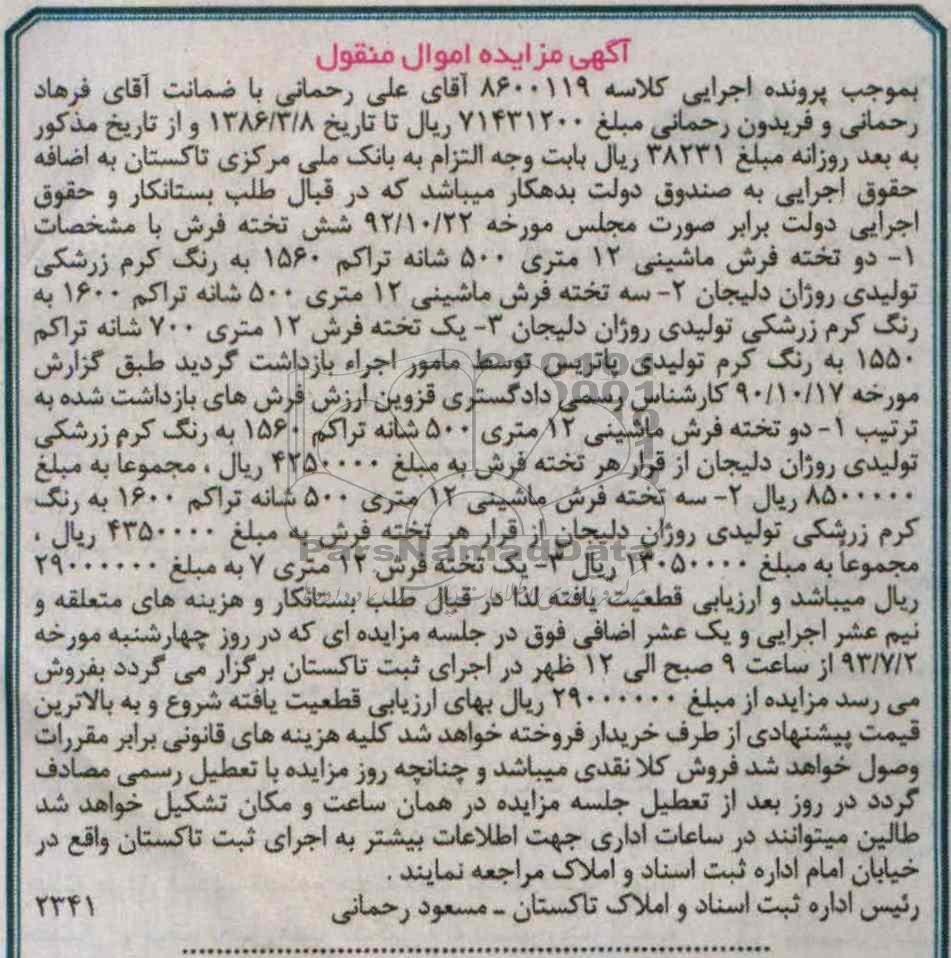 آگهی مزایده اموال منقول
بموجب پرونده اجرایی کلاسه ۸۶۰۰۱۱۹ آقای علی رحمانی با ضمانت آقای فرهاد
رحمانی و فریدون رحمانی مبلغ ۷۱۴۳۱۲۰۰ ریال تا تاریخ ۱۳۸۶/۳/۸ و از تاریخ مذکور
به بعد روزانه مبلغ ۳۸۲۳۱ ریال بابت وجه التزام به بانک ملی مرکزی تاکستان به اضافه
حقوق اجرایی به صندوق دولت بدهکار میباشد که در قبال طلب بستانکار و حقوق
اجرایی دولت برابر صورت مجلس مورخه ۹۲/۱۰/۲۲ شش تخته فرش با مشخصات
۱- دو تخته فرش ماشینی ۱۲ متری ۵۰۰ شانه تراکم ۱۵۶۰ به رنگ کرم زرشکی
تولیدی روژان دلیجان ۲- سه تخته فرش ماشینی ۱۲ متری ۵۰۰ شانه تراکم ۱۶۰۰ به
رنگ کرم زرشکی تولیدی روژان دلیجان ۳- یک تخته فرش ۱۲ متری ۷۰۰ شانه تراکم
۱۵۵۰ به رنگ کرم تولیدی پاتریس توسط مامور اجراء بازداشت گردید طبق گزارش
مورخه ۹۰/۱۰/۱۷ کارشناس رسمی دادگستری قزوین ارزش فرش های بازداشت شده به
ترتیب ۱- دو تخته فرش ماشینی ۱۲ متری ۵۰۰ شانه تراکم ۱۵۶۰ به رنگ کرم زرشکی
تولیدی روژان دلیجان از قرار هر تخته فرش به مبلغ ۴۲۵۰۰۰۰ ریال ، مجموعا به مبلغ
۸۵۰۰۰۰۰ ریال ۲- سه تخته فرش ماشینی ۱۲ متری ۵۰۰ شانه تراکم ۱۶۰۰ به رنگ
کرم زرشکی تولیدی روژان دلیجان از قرار هر تخته فرش به مبلغ ۴۳۵۰۰۰۰ ریال ،
مجموعاً به مبلغ ۱۳۰۵۰۰۰۰ ریال ۳- یک تخته فرش ۱۲ متری ۷ به مبلغ ۲۹۰۰۰۰۰۰
ریال میباشد و ارزیابی قطعیت یافته لذا در قبال طلب بستانکار و هزینه های متعلقه و
نیم عشر اجرایی و یک عشر اضافی فوق در جلسه مزایده ای که در روز چهارشنبه مورخه
۹۳/۷/۲ از ساعت ۹ صبح الی ۱۲ ظهر در اجرای ثبت تاکستان برگزار می گردد بفروش
می رسد مزایده از مبلغ ۲۹۰۰۰۰۰۰ ریال بهای ارزیابی قطعیت یافته شروع و به بالاترین
قیمت پیشنهادی از طرف خریدار فروخته خواهد شد کلیه هزینه های قانونی برابر مقررات
وصول خواهد شد فروش کلا نقدی میباشد و چنانچه روز مزایده با تعطیل رسمی مصادف
گردد در روز بعد از تعطیل جلسه مزایده در همان ساعت و مکان تشکیل خواهد شد
طالین میتوانند در ساعات اداری جهت اطلاعات بیشتر به اجرای ثبت تاکستان واقع در
خیابان امام اداره ثبت اسناد و املاک مراجعه نمایند .
رئیس اداره ثبت اسناد و املاک تاکستان - مسعود رحمانی ۲۳۴۱
ParsNamadData